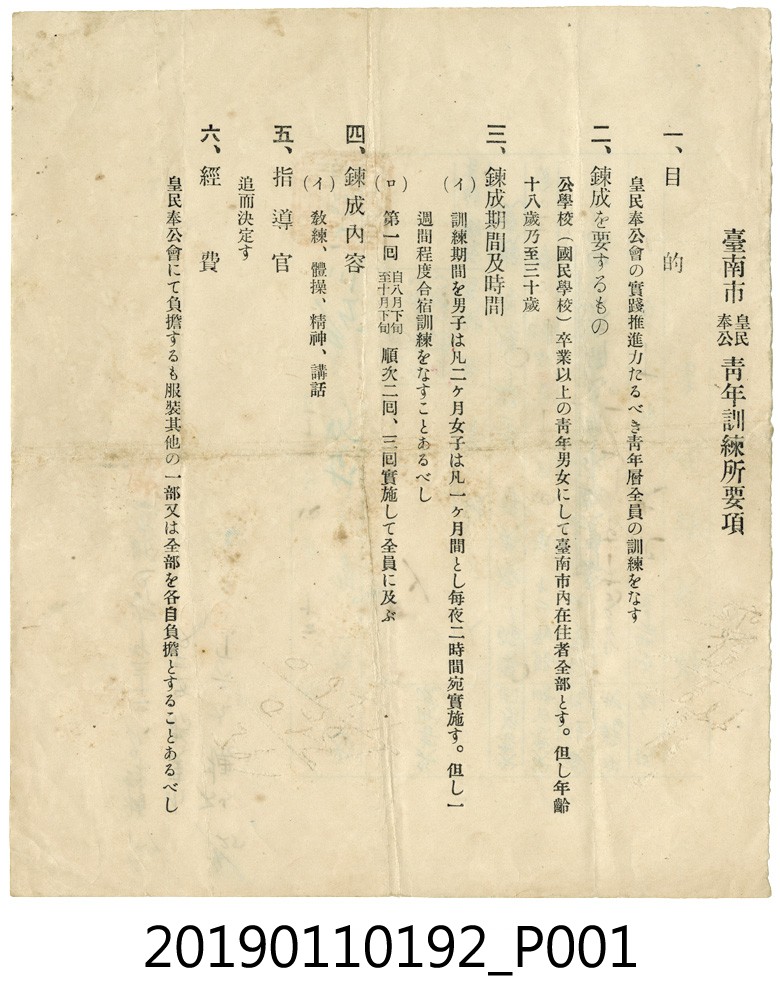 臺南市皇民奉公靑年訓練所要項
一、目的
皇民奉公會の實踐推進力たるべき靑年層全員の訓練をなす
二、鍊成を要するもの
公學校（國民學校）卒業以上の靑年男女にして臺南市內在住者全部とす。但し年齡
十八歲乃至三十歲
三、鍊成期間及時間
（イ）訓練期間を男子は凡二ケ月女子は凡一ケ月間とし每夜二時間宛實施す。但し一
週間程度合宿訓練をなすことあるべし
（ロ）第一回自八月下旬至十月下旬順次二回、三回實施して全員に及ぶ
四、鍊成內容
（イ）敎練、體操、精神、講話
五、指導官
追而決定す
六、經費
皇民奉公會にて負擔するも服裝其他の一部又は全部を各自負擔とすることあるべし
20190110192_P001